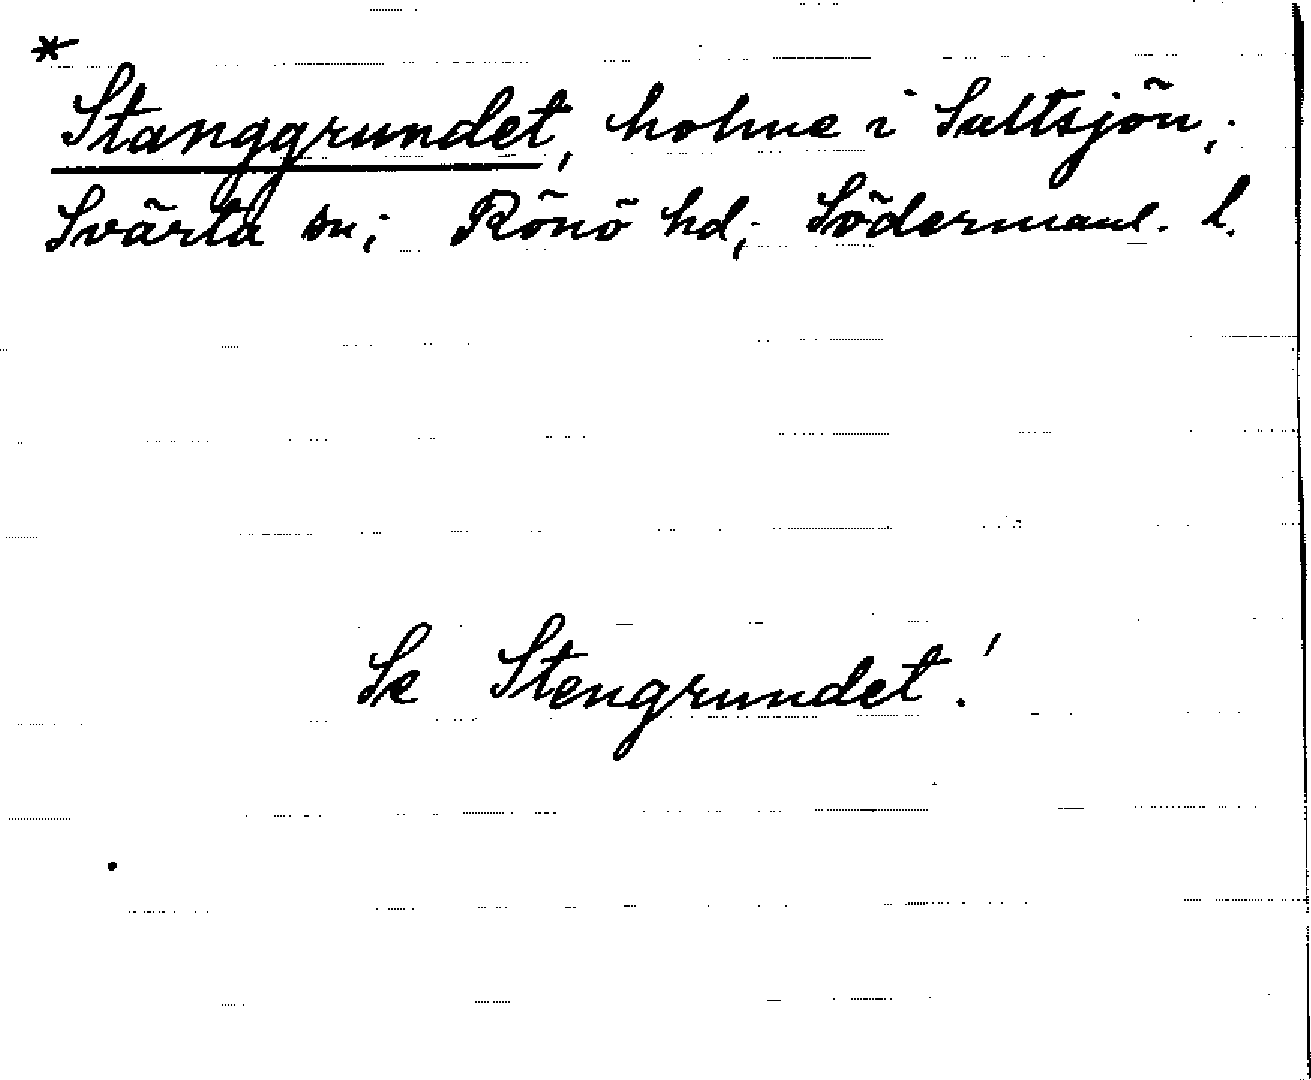 *
Stanggrundet, holme i Saltsjön;
Svärta sn; Rönö hd; Södermanl. l.
Se Stengrundet!